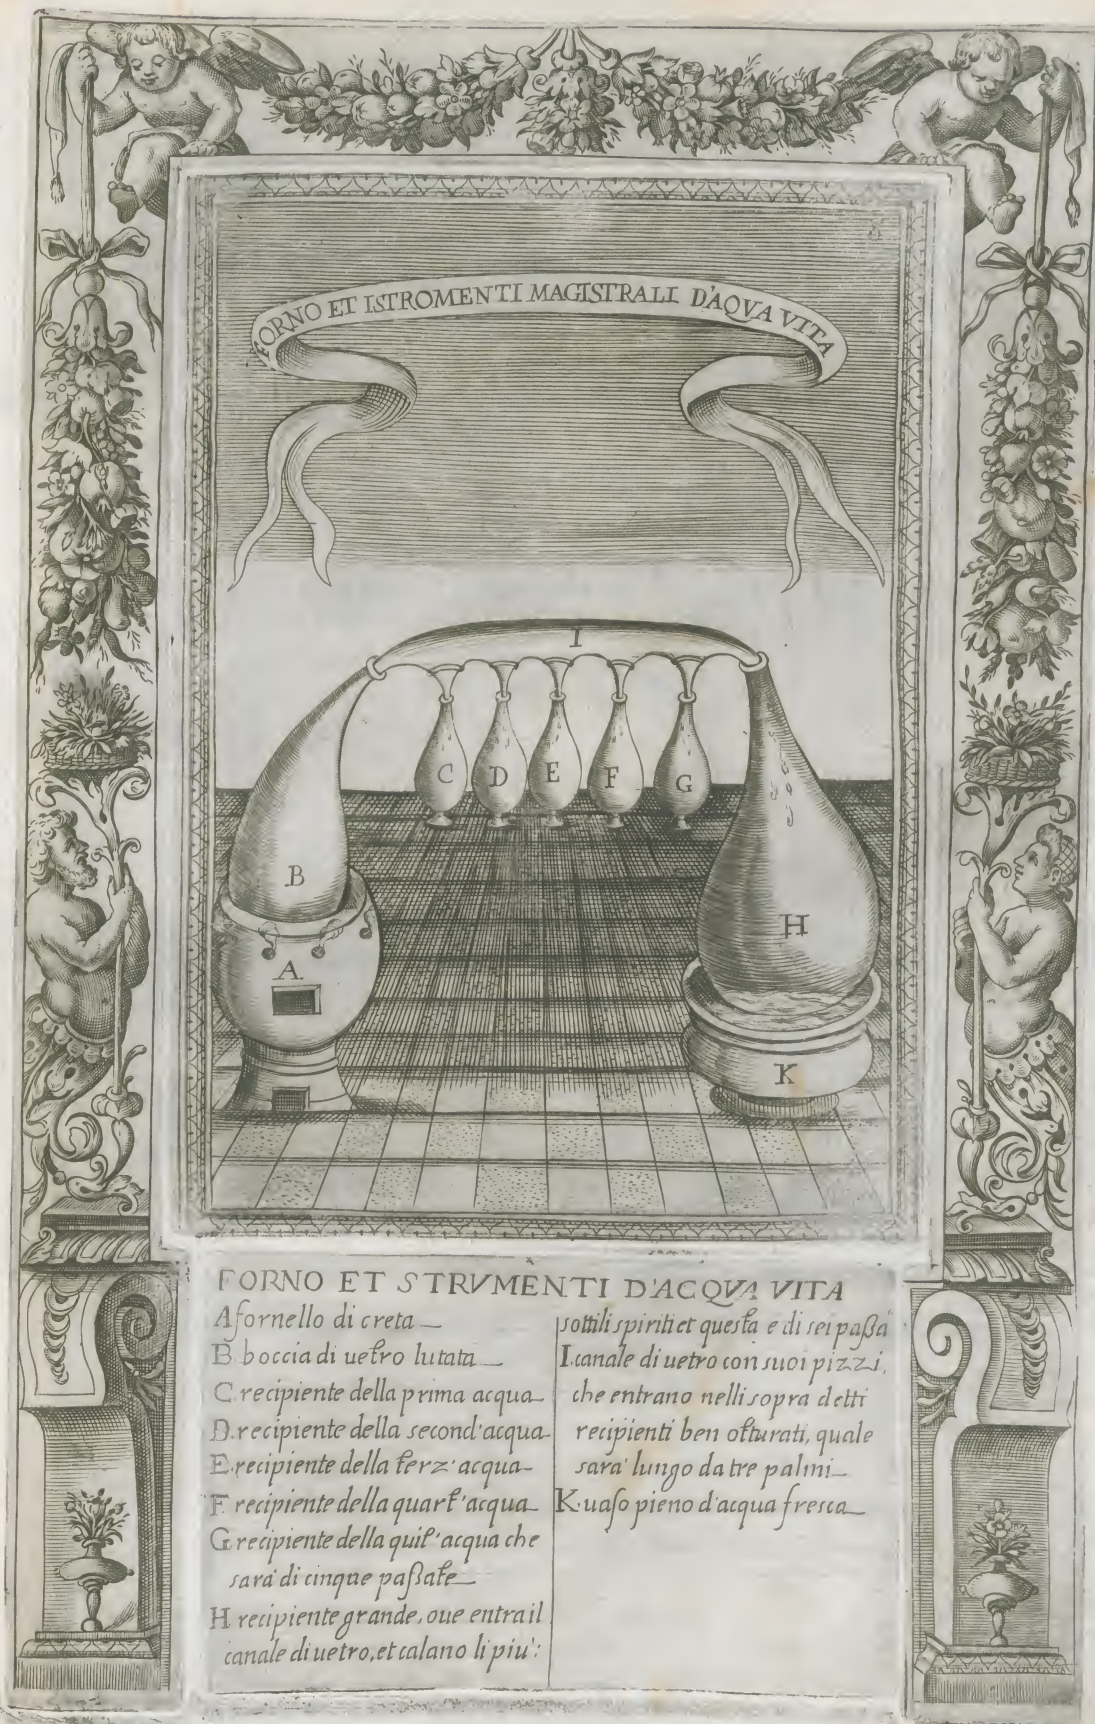 FORNO ET ISTROMENTI MAGISTRALI D'AQVA VITA
I
C D E F G
B
H
A
K
FORNO ET STRVMENTI D'ACQVA VITA
A fornello di creta
B. boccia di uetro lutata
C. recipiente della prima acqua
D. recipiente della second'acqua
E. recipiente della terz'acqua
F. recipiente della quart'acqua
G. recipiente della quit'acqua che
sarà di cinque paßate
H. recipiente grande, oue entra il
canale di uetro, et calano li più:
sottili spiriti et questa e di sei paßa
I. canale di uetro con suoi pizzi,
che entrano nelli sopra detti
recipienti ben otturati, quale
sarà lungo da tre palmi
K. uaso pieno d'acqua fresca